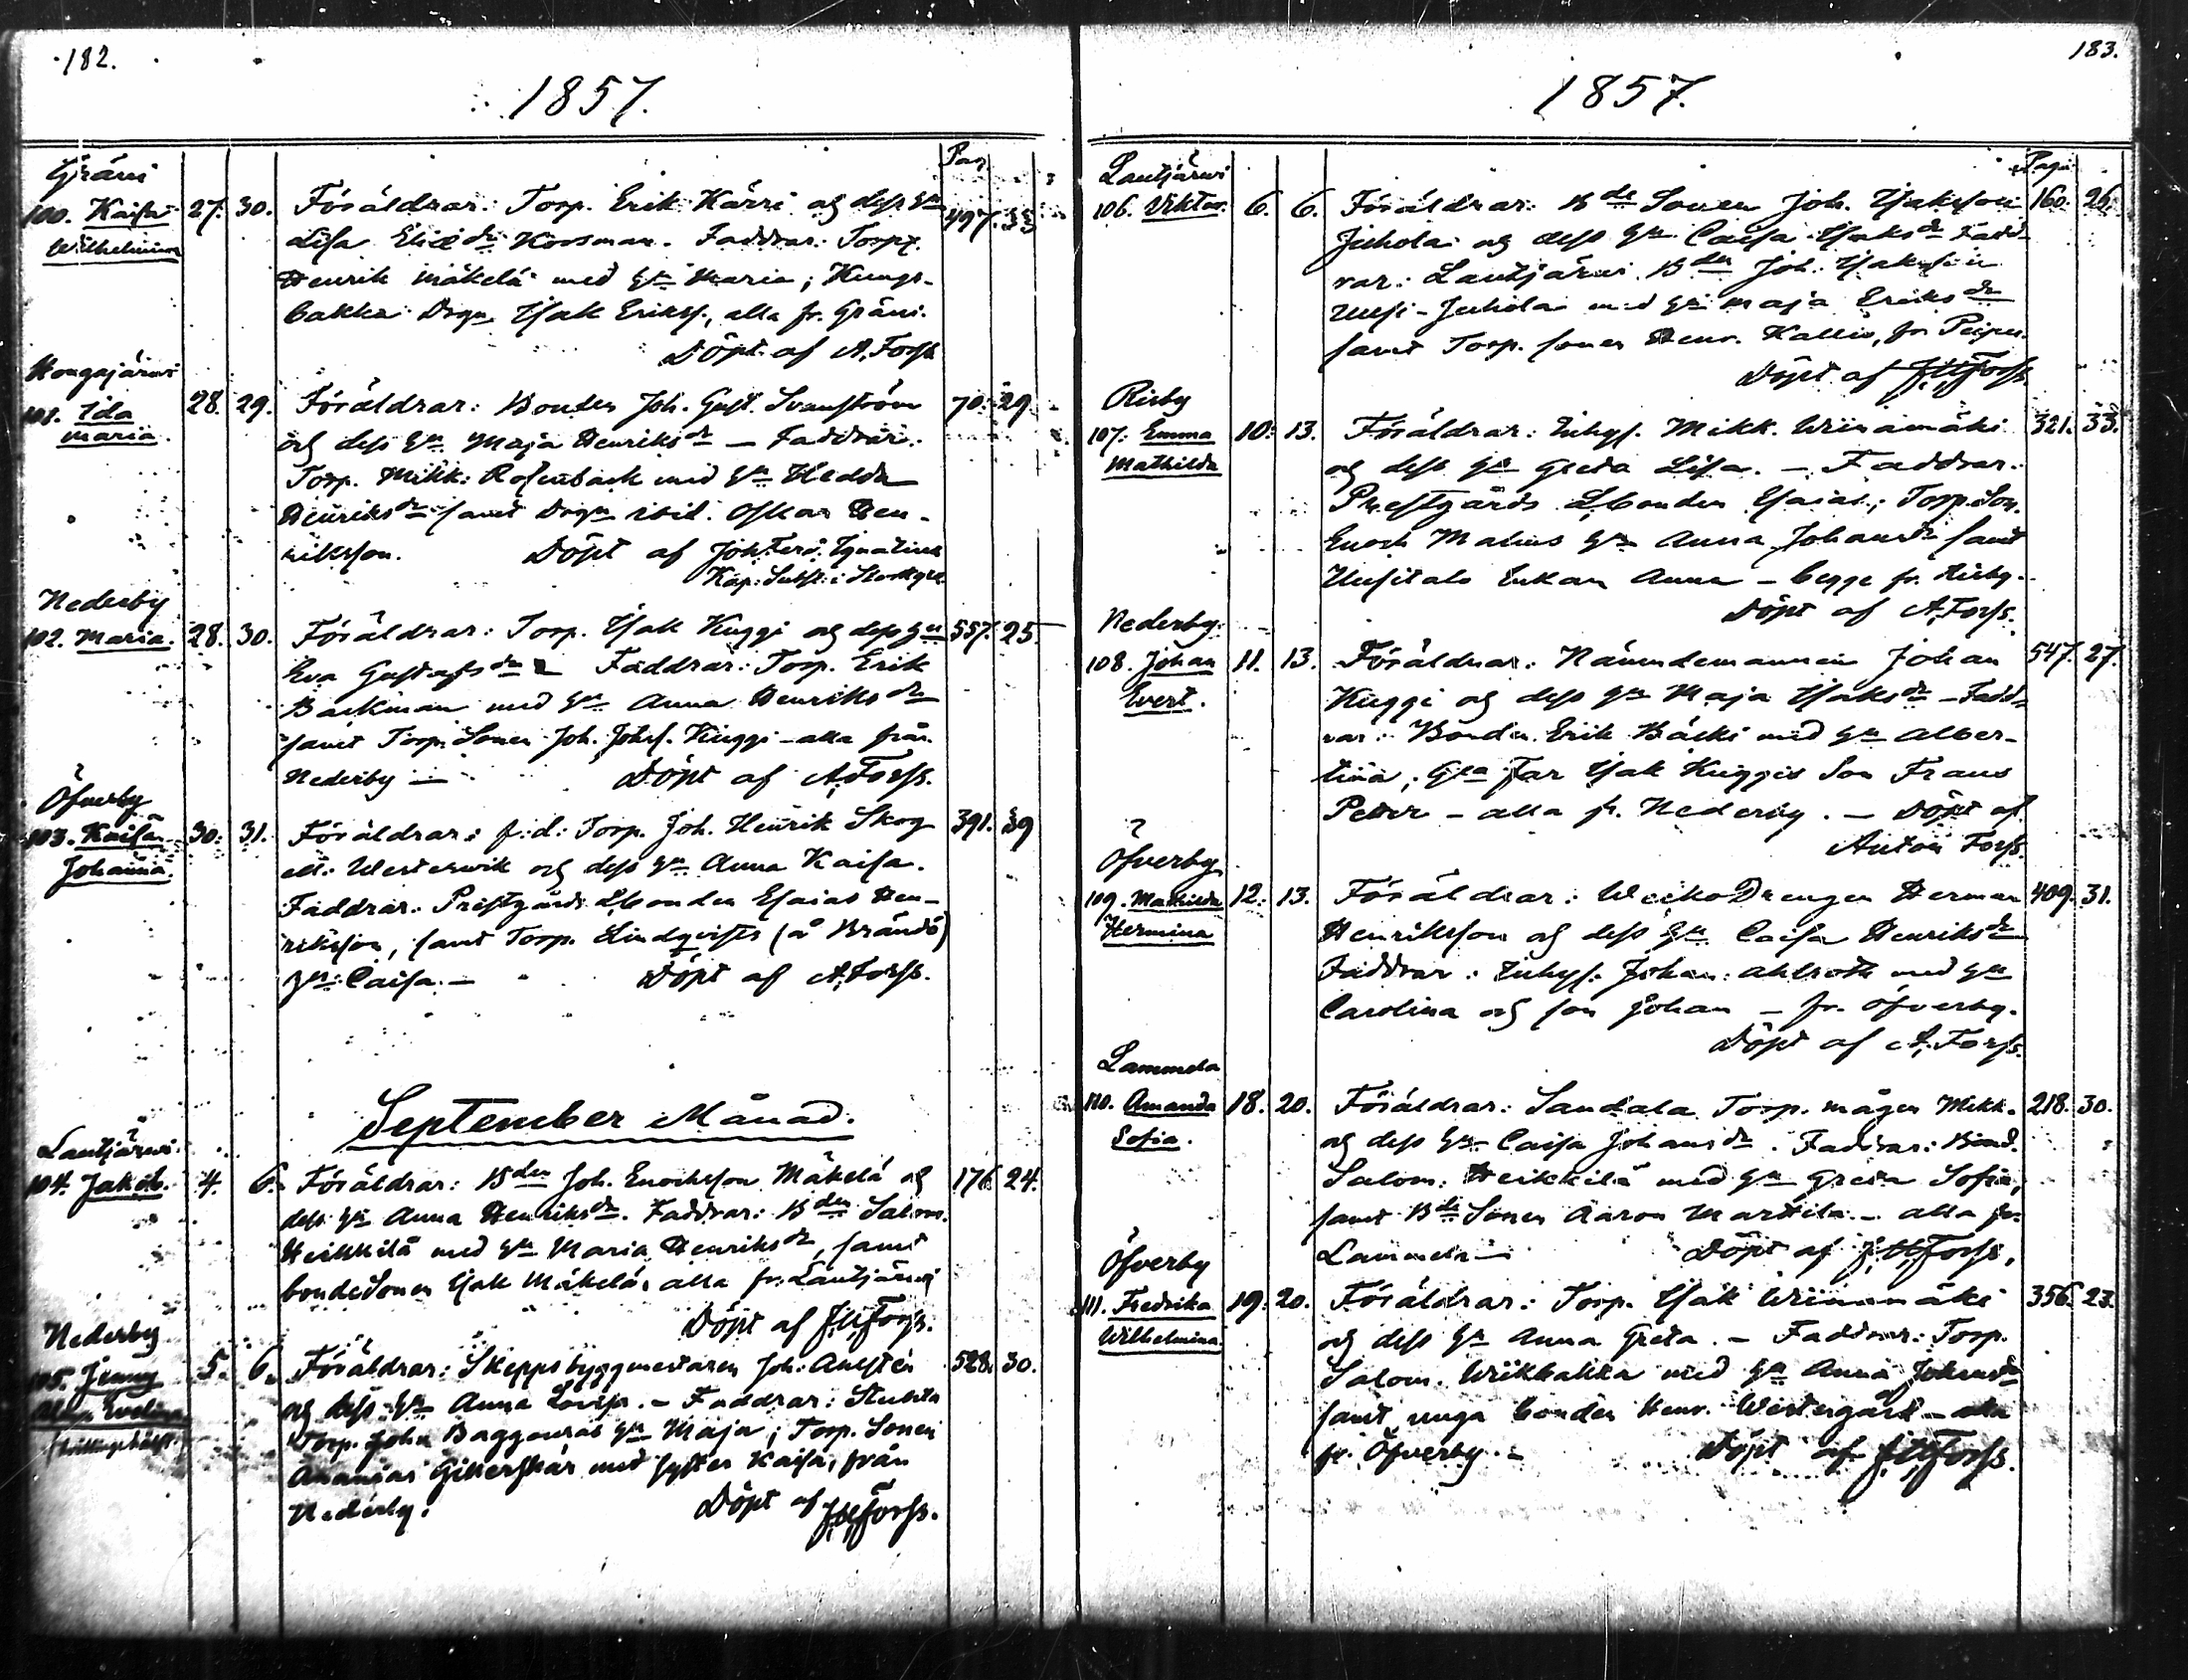 182.
1857.
Pag
Gräni
100. Kaisa 27. 30. Föräldrar: Torp. Erik Kärri og dess hu 497. 33
Wilhelmina Lisa Eliædr Korsman. Faddrar: Torp.
Henrik Mäkelä med hu Maria; Kungs-
backa Drgn Isak Erikss., alla fr. Gräni.
Döpt af A. Forss.
Hongajärvi
101. Ida 28. 29. Föräldrar: Bonden Joh. Gust. Svanström 70. 29
Maria. og dess hu Maja Henriksdr — Faddrar:
Torp. Mikk. Rosenback med hu Hedda
Henriksdr samt Drgn ibid. Oskar Hen-
riksson. Döpt af Joh. Ferd. Ignatius
Kap: Subst: i Storkyro
Nederby
102. Maria. 28. 30. Föräldrar: Torp. Isak Kuggi og dess hu 557. 25.
Eva Gustafsdr — Faddrar: Torp. Erik
Backman med hu Anna Henriksdr
samt Torp. Sonen Joh. Johss. Kuggi — alla från
Nederby — Döpt af A. Forss.
Öfverby
103. Kaisa 30. 31. Föräldrar: f.d. Torp. Joh. Henrik Skog 391. 39
Johanna. ell. Westervik og dess hu Anna Kaisa.
Faddrar: Prestgårds Lbonden Esaias Hen-
riksson, samt Torp. Lindqvists (å Brändö)
hu Caisa. — Döpt af A. Forss.
September Månad.
Lautjärvi
104. Jakob. 4. 6. Föräldrar: Bden Joh. Enochsson Mäkelä og 176 24.
dess hu Anna Henriksdr. Faddrar: Bden Salom.
Heikkilä med hu Maria Henriksdr, samt
bondeSonen Isak Mäkelä, alla fr. Lautjärvi
Döpt af J.H. Forss.
Nederby
105. Jenny 5. 6. Föräldrar: Skeppsbyggmestaren Joh. Anstén 528. 30.
Evelina og dess hu Anna Lovisa. — Faddrar:
Torp. Joh. hu Maja; Torp. Sonen
Ananias med syster Kaisa, från
Nederby. Döpt af J.H. Forss.
183.
1857.
Pagi
Lautjärvi
106. Viktor. 6. 6. Föräldrar: Bde Sonen Joh. Isaksson 160. 26.
Juhola og dess hu Caisa Isaksdr Fadd-
rar: Lautjärvi Bden Joh. Isaksson
Uusi-Juhola med hu Maja Eriksdr
samt Torp. sonen Henr. Kallio, fr.
Döpt af J.H. Forss
Risby
107. Emma 10. 13. Föräldrar: Inhys. Mikk. Wiinamäki 321. 33.
Mathilda og dess hu Greta Lisa. — Faddrar:
Prestgårds Lbonden Esaias; Torp. Son.
Enoch Malius hu Anna Johansdr samt
Uusitalo Enkan Anna — begge fr. Risby.
Döpt af A. Forss.
Nederby.
108. Johan 11. 13. Föräldrar: Nämndemannen Johan 547. 27.
Evert. Kuggi og dess hu Maja Isaksdr — Fadd-
rar: Bonden Erik Bäcki med hu Alber-
tina; Gla Far Isak Kuggis Son Frans
Petter — alla fr. Nederby. — Döpt af
Anton Forss.
Öfverby
109. Mathilda 12. 13. Föräldrar: WeckoDrengen Herman 409. 31.
Hermina Henriksson og dess hu Caisa Henriksdr
Faddrar: Inhys. Johan Ahlroth med hu
Carolina og son Johan — fr. Öfverby.
Döpt af A. Forss.
Lammela
110. Amanda 18. 20. Föräldrar: Sandala Torp. mågen Mikk. 218. 30.
Sofia. og dess hu Caisa Johansdr. Faddrar: Bond.
Salom. Heikkilä med hu Greta Sofia,
samt Bde Sonen Aaron Marttila — alla fr.
Lammela — Döpt af J.H. Forss.
Öfverby
111. Fredrika 19. 20. Föräldrar: Torp. Isak Wiinamäki 356. 23.
Wilhelmina. og dess hu Anna Greta. — Faddrar: Torp.
Salom. Wiikbakka med hu Anna Johansdr
samt unga bonden Henr. Westergård — alla
fr. Öfverby. — Döpt af J.H. Forss.